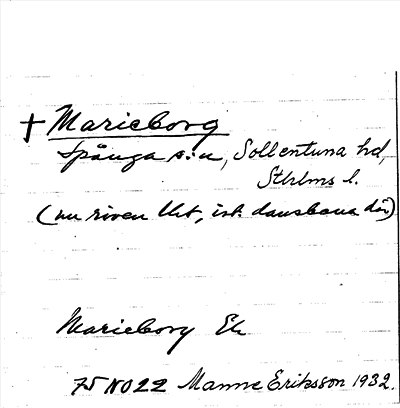 † Marieborg
Spånga s:n, Sollentuna hd,
Sthlms l.
(nu riven lht, ist. dansbana där)
Marieborg Ek
75 NO 22 Manne Eriksson 1932.